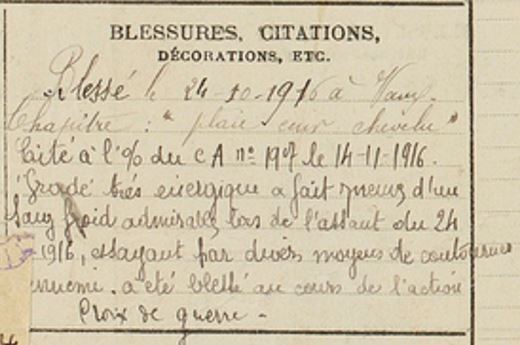 BLESSURES, CITATIONS,
DÉCORATIONS, ETC.
Blessé le 24-10-1916 à Vaux-
Chapitre : "plaie cuir chevelu"
Cité à l'O/ du C A n° 1907 le 14-11-1916.
"Gradé trés énergique a fait preuve d'un
sang froid admirable lors de l'assaut du 24
1916, essayant par divers moyens de contourner
ennemi. a été blessé au cours de l'action
Croix de guerre -